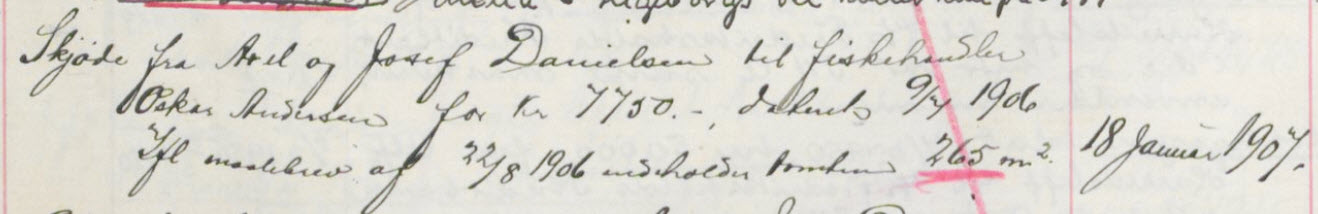 Skjøde fra Axel og Josef Danielsen til fiskehandler
Oskar Andersen for Kr 7750.-, dateret 9/7 1906
Ifl maalebrev af 22/8 1906 indeholder tomten 265 m². 18 Januar 1907.